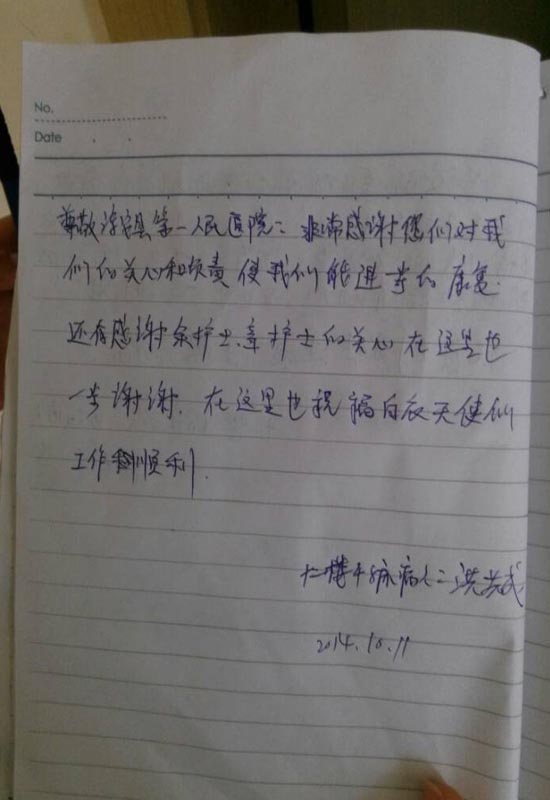 No.
Date
尊敬 第一人民医院：非常感谢您们对我
们的关心和负责 使我们能进步的康复.
还有感谢余护士、章护士的关心 在这里也
一步谢谢. 在这里也祝福白衣天使们
工作顺利.
病人：洪
2014.10.11